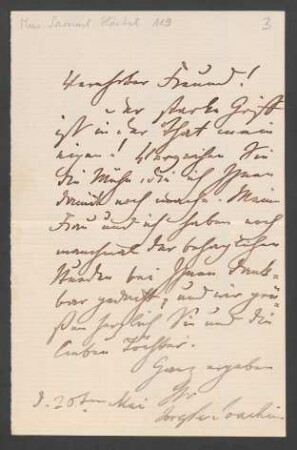 119
3
Verehrter Freund!
Der starke Griff
ist in der That mein
eigen! Verzeihen Sie
die Mühe, die ich Ihnen
damit noch mache. Meine
Frau und ich haben noch
manchmal der behaglichen
Stunden bei Ihnen dank-
bar gedacht, und wir grü-
ßen herzlich Sie und die
lieben Töchter.
Ganz ergeben
Ihr
Joseph Joachim
d. 20sten Mai